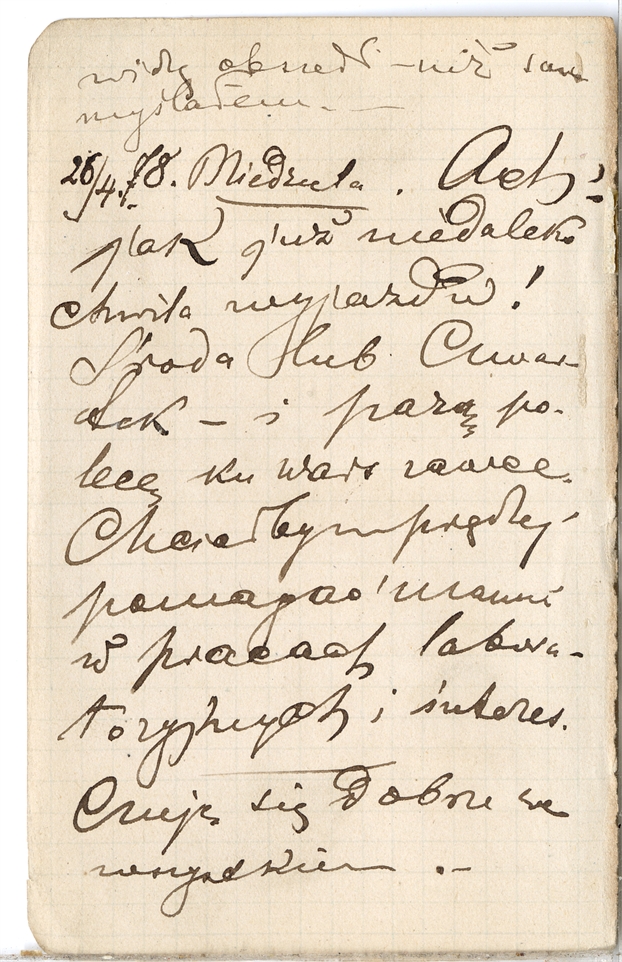 widzę obszedł – niż sam
myślałem. –
28/4.78. Niedziela. Ach!
jak już niedaleko
chwila wyjazdów!
Środa lub Czwar-
tek – i parą po-
lecę ku Warszawce.
Chciałbym prędzej
pomagać mamie
w pracach labora-
toryjnych i interes.
Czuję się dobrze we
wszystkiem. –